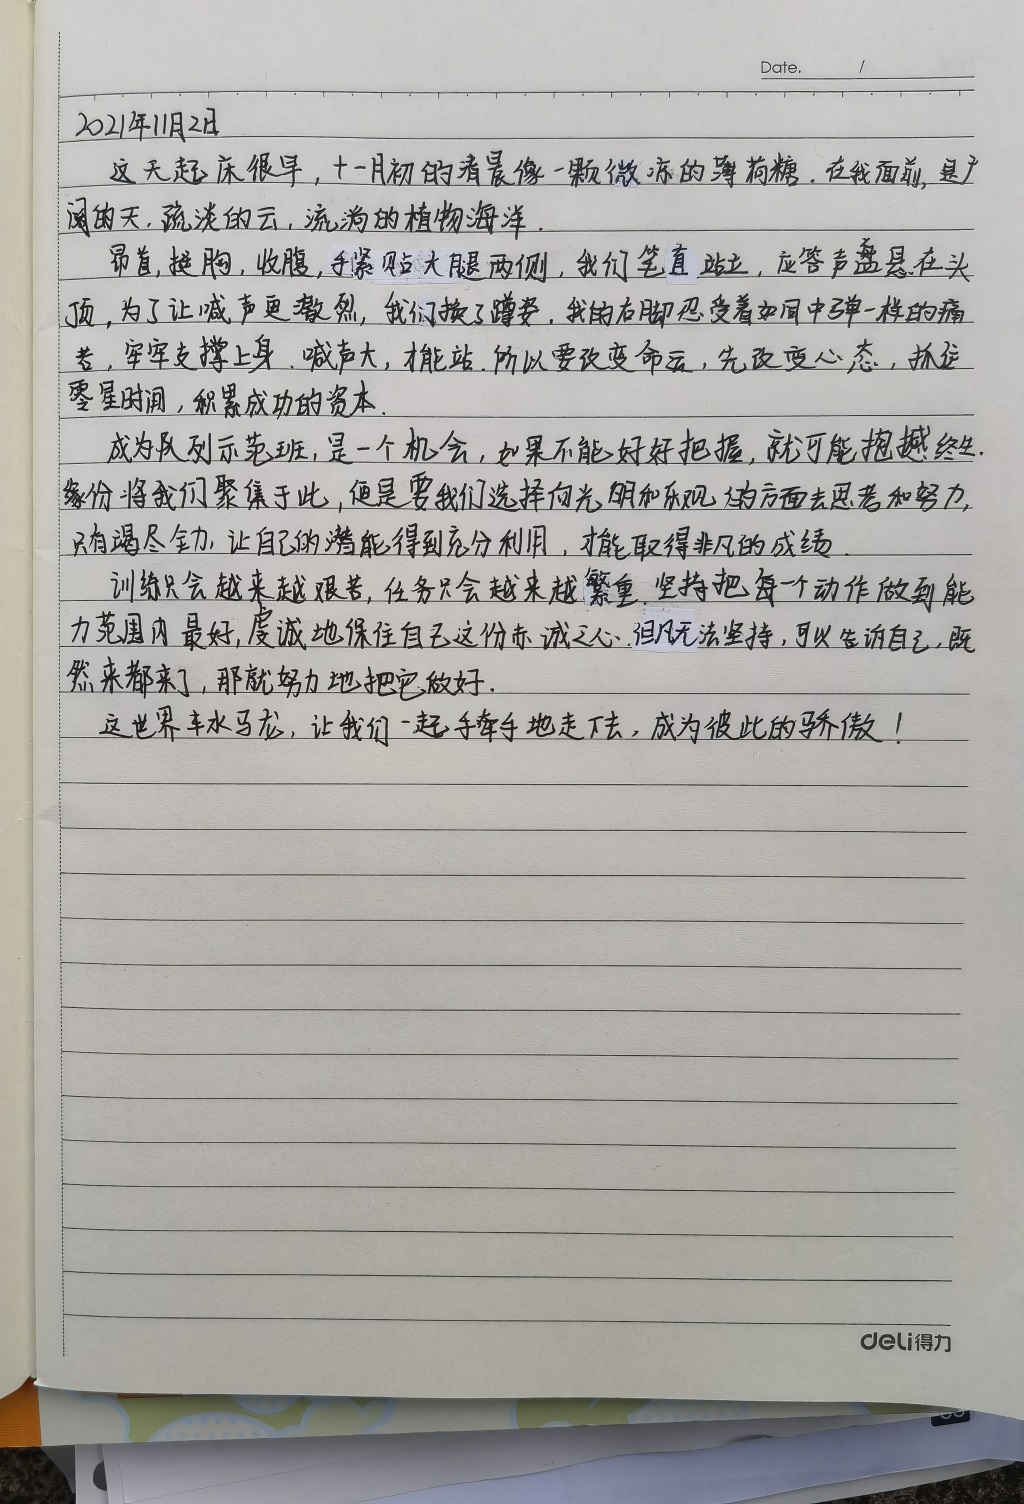 Date. /
2021年11月2日
这天起床很早，十一月初的清晨像一颗微凉的薄荷糖．在我面前，是广
阔的天．疏淡的云，流淌的植物海洋．
昂首，挺胸，收腹，手紧贴大腿两侧，我们笔直站立，应答声盘悬在头
顶，为了让喊声更激烈，我们换了蹲姿．我的右脚忍受着如同中弹一样的痛
苦，牢牢支撑上身．喊声大，才能站．所以要改变命运，先改变心态，抓住
零星时间，积累成功的资本．
成为队列示范班，是一个机会，如果不能好好把握，就可能抱撼终生．
缘份将我们聚集于此，便是要我们选择向光明和乐观的方面去思考和努力，
只有竭尽全力，让自己的潜能得到充分利用，才能取得非凡的成绩．
训练只会越来越艰苦，任务只会越来越繁重．坚持把每一个动作做到能
力范围内最好，虔诚地保住自己这份赤诚之心．但凡无法坚持，可以告诉自己，既
然来都来了，那就努力地把它做好．
这世界车水马龙，让我们一起手牵手地走下去，成为彼此的骄傲！
deli得力